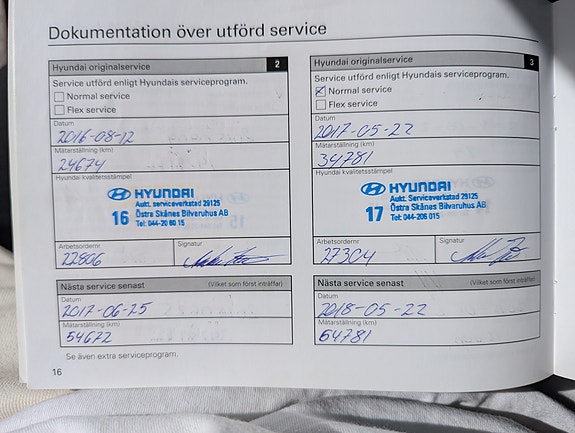 Dokumentation över utförd service
Hyundai originalservice 2
Service utförd enligt Hyundais serviceprogram.
Normal service
Flex service
Datum
2016-08-12
Mätarställning (km)
24674
Hyundai kvalitetsstämpel
HYUNDAI
Aukt. serviceverkstad 29125
16 Östra Skånes Bilvaruhus AB
Tel: 044-20 60 15
Arbetsordernr Signatur
22806
Nästa service senast (Vilket som först inträffar)
Datum
2017-06-25
Mätarställning (km)
54672
Se även extra serviceprogram.
16
Hyundai originalservice 3
Service utförd enligt Hyundais serviceprogram.
Normal service
Flex service
Datum
2017-05-22
Mätarställning (km)
34781
Hyundai kvalitetsstämpel
HYUNDAI
Aukt. Serviceverkstad 29125
17 Östra Skånes Bilvaruhus AB
Tel: 044-206 015
Arbetsordernr Signatur
27304
Nästa service senast (Vilket som först inträffar)
Datum
2018-05-22
Mätarställning (km)
64781